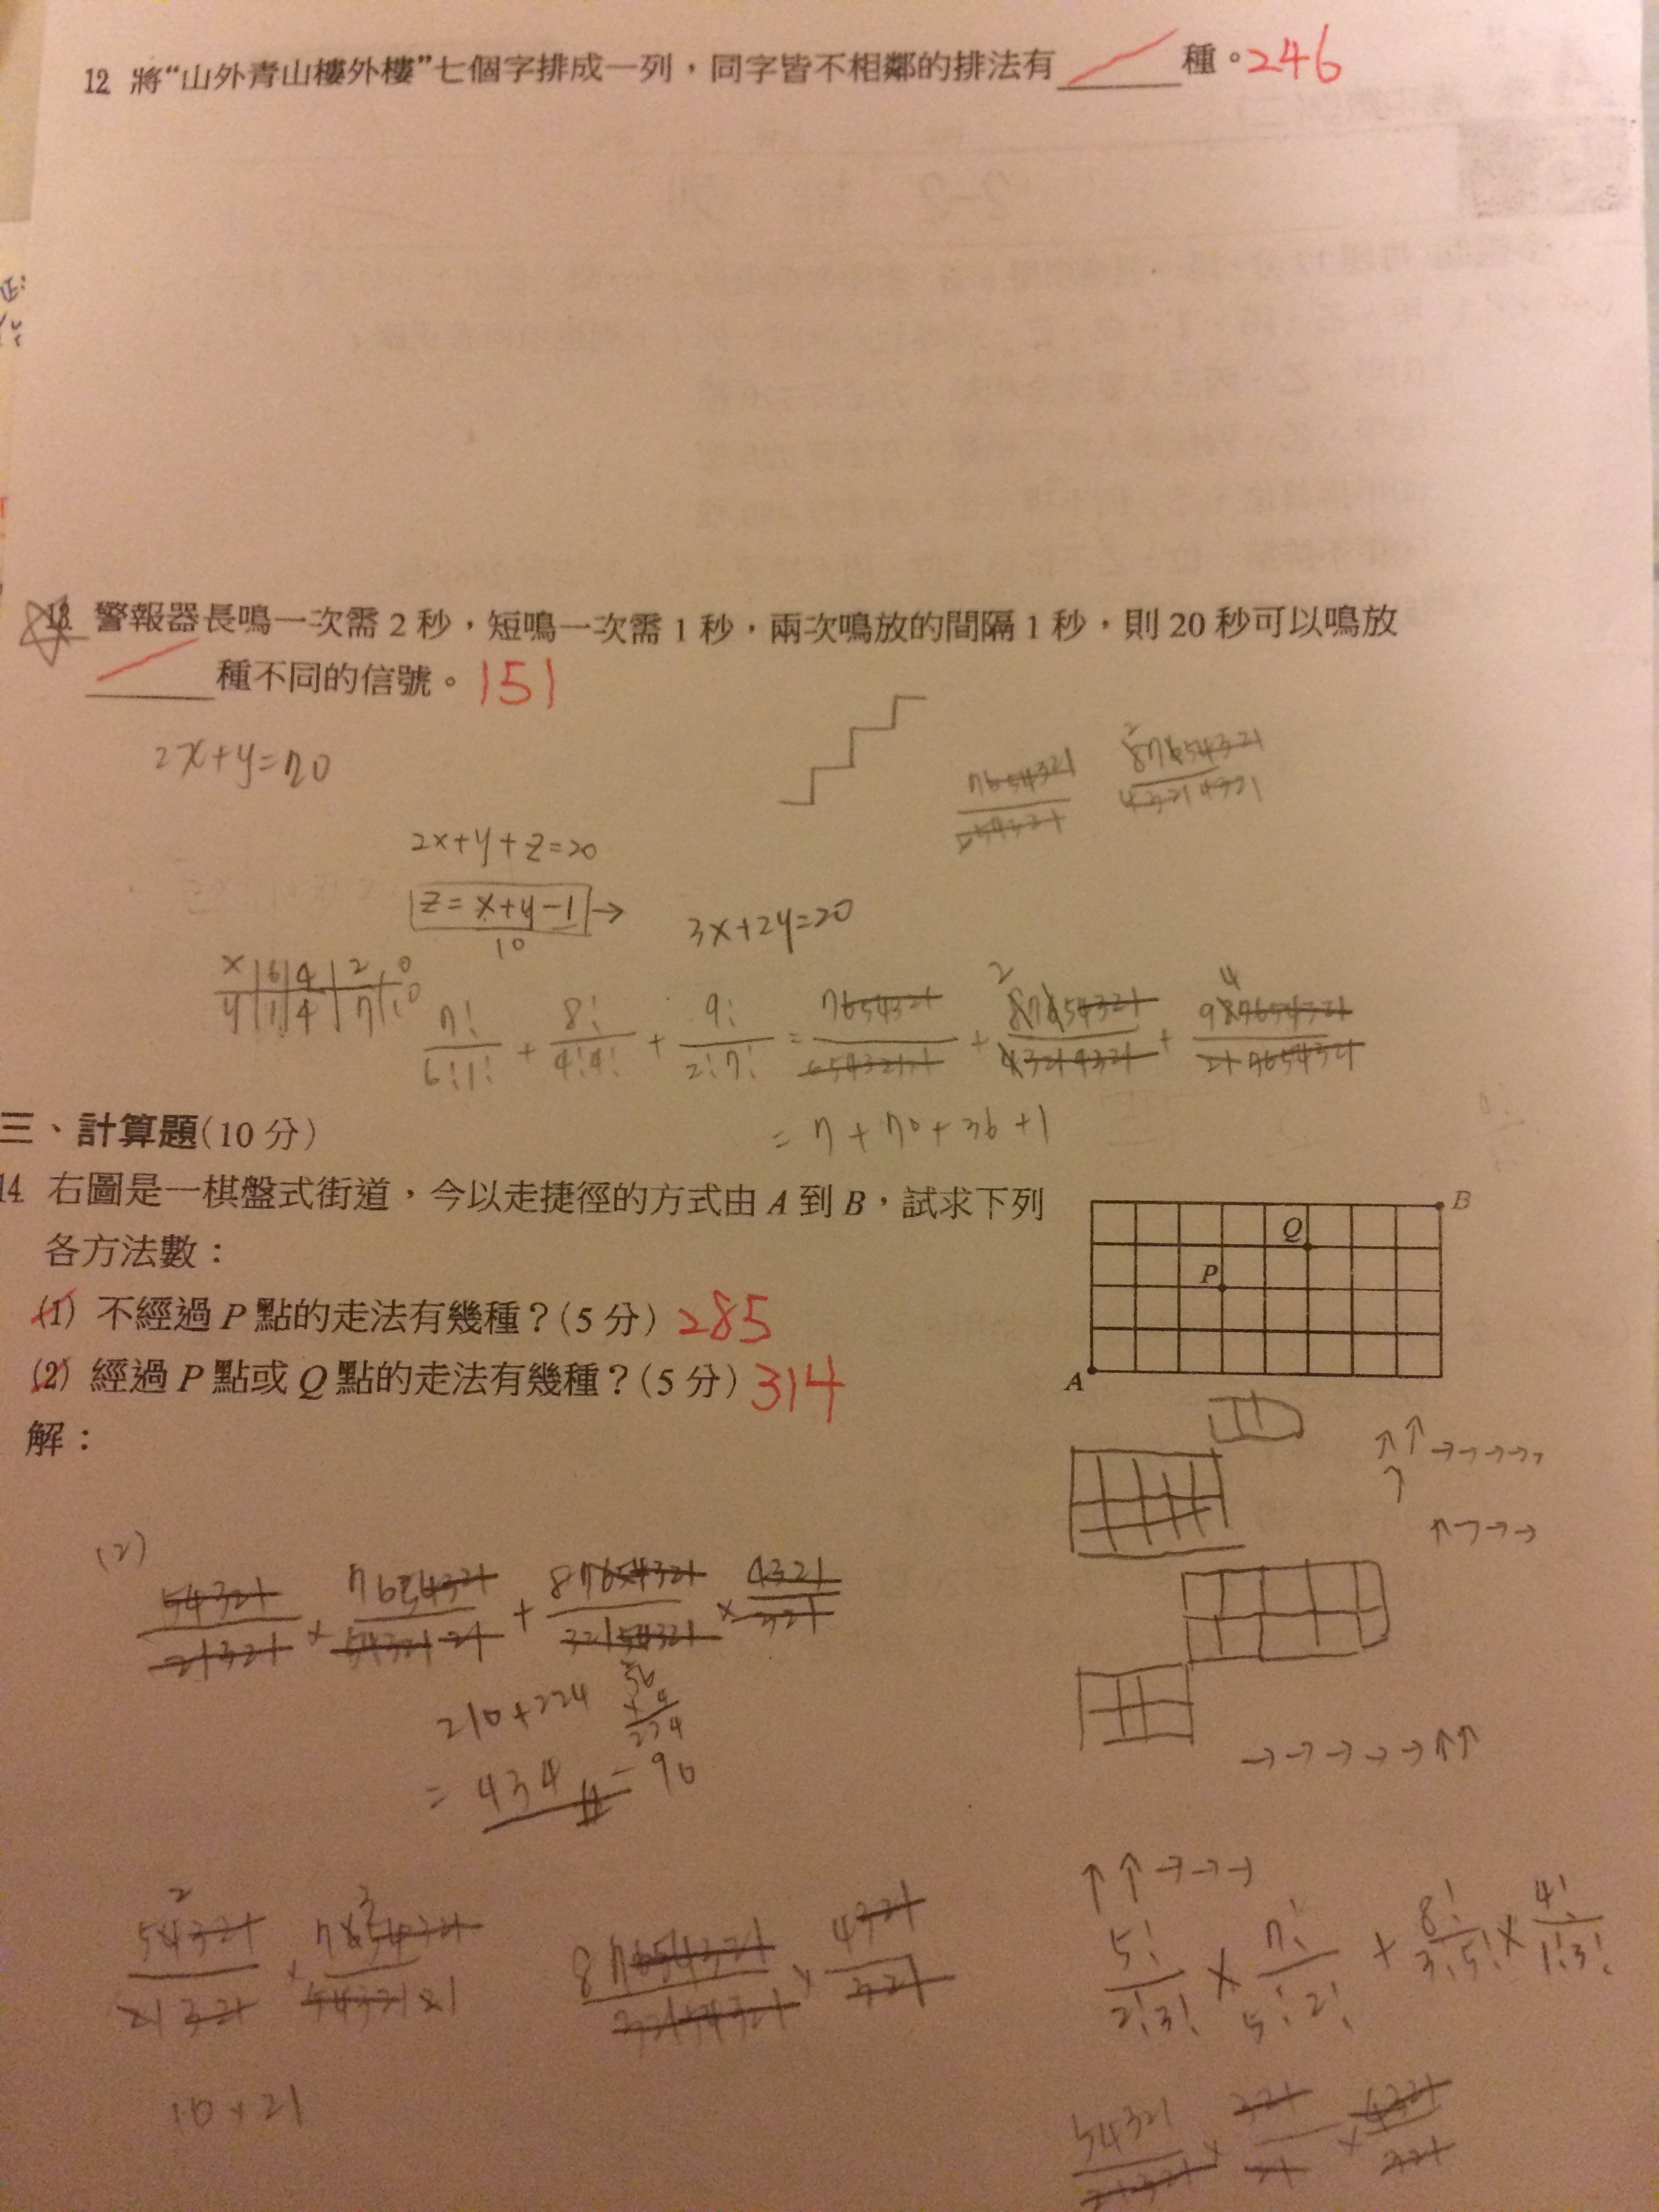 12 將“山外青山樓外樓”七個字排成一列，同字皆不相鄰的排法有______種。246
13 警報器長鳴一次需 2 秒，短鳴一次需 1 秒，兩次鳴放的間隔 1 秒，則 20 秒可以鳴放
______種不同的信號。151
2x+y=20
7654321/654321 87654321/43214321
2x+y+z=20
z=x+y-1 → 3x+2y=20
10
x 6 4 2 0
y 1 4 7 10
7!/6!1! + 8!/4!4! + 9!/2!7! = 7654321/6543211 + 87654321/43214321 + 987654321/217654321
= 7+70+36+1
三、計算題(10 分)
14 右圖是一棋盤式街道，今以走捷徑的方式由 A 到 B，試求下列
各方法數：
(1) 不經過 P 點的走法有幾種？(5 分) 285
(2) 經過 P 點或 Q 點的走法有幾種？(5 分) 314
解：
B
Q
P
A
↑↑→→→→→
↑→→→
(2)
54321/21321 × 7654321/5432121 + 87654321/32154321 × 4321/321
210+224
56
×4
224
= 434 = 90
→→→→→↑↑
↑↑→→→
54321/21321 × 7654321/5432121 87654321/32154321 × 4321/321
5!/2!3! × 7!/5!2! + 8!/3!5! × 4!/1!3!
10×21
54321/21321 × 321/21 × 4321/321